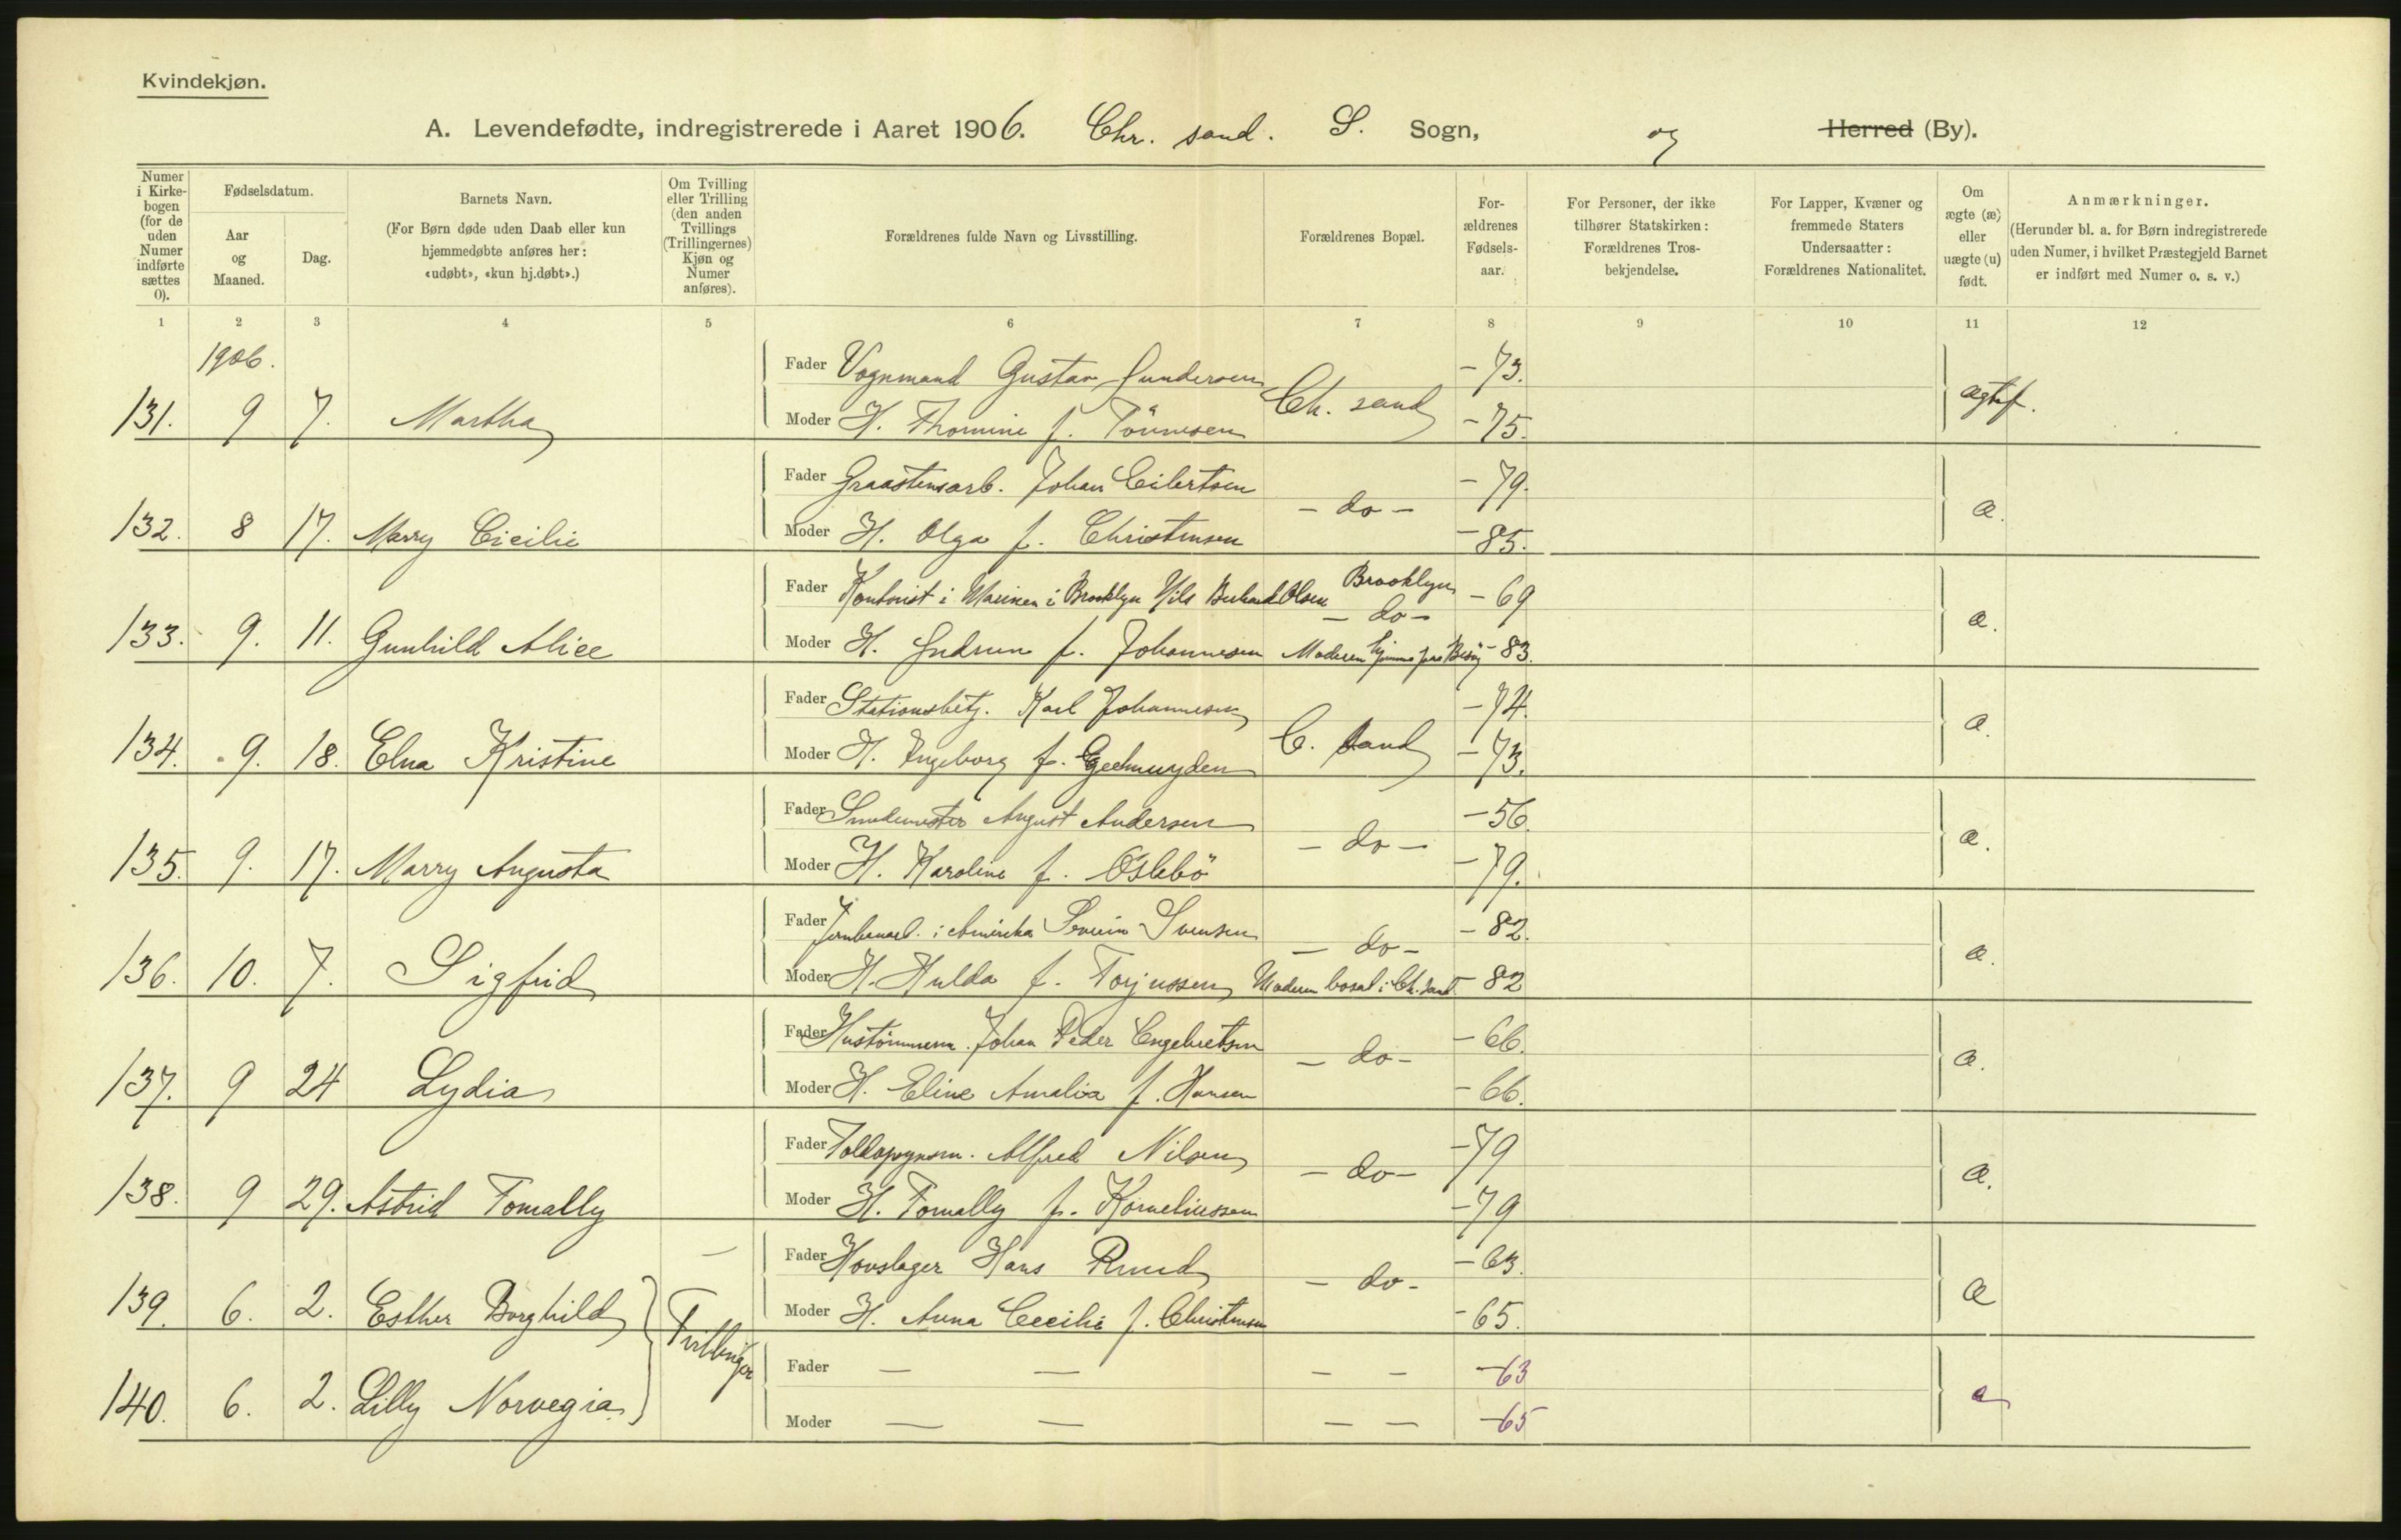 Kvindekjøn.
A. Levendefødte, indregistrerede i Aaret 1906. Chr. sand. S. Sogn, og Herred (By).
Numer i Kirkebogen (for de uden Numer indførte sættes 0).
Fødselsdatum.
Aar og Maaned.
Dag.
Barnets Navn.
(For Børn døde uden Daab eller kun hjemmedøbte anføres her: «udøbt», «kun hj.døbt».)
Om Tvilling eller Trilling (den anden Tvillings (Trillingernes) Kjøn og Numer anføres).
Forældrenes fulde Navn og Livsstilling.
Forældrenes Bopæl.
Forældrenes Fødselsaar.
For Personer, der ikke tilhører Statskirken: Forældrenes Trosbekjendelse.
For Lapper, Kvæner og fremmede Staters Undersaatter: Forældrenes Nationalitet.
Om ægte (æ) eller uægte (u) født.
Anmærkninger.
(Herunder bl. a. for Børn indregistrerede uden Numer, i hvilket Præstegjeld Barnet er indført med Numer o. s. v.)
1 2 3 4 5 6 7 8 9 10 11 12
1906.
Fader Vognmand Gustav Gundersen -73.
131. 9 7. Martha Moder H. Thomine f. Tönnesen Ch. sand -75. ægtef.
Fader Graastensarb. Johan Eilertsen -79.
132. 8 17. Marry Cicilie Moder H. Olga f. Christensen - do - -85. æ.
Fader Kontorist i Marinen i Brooklyn Nils Olsen Brooklyn -69
133. 9. 11. Gunhild Alice Moder H. Gudrun f. Johannesen - do - Moderen hjemme paa Besøg -83. æ.
Fader Stationsbetj. Karl Johannesen -74.
134. 9. 18. Elna Kristine Moder H. Ingeborg f. Geelmuyden C. sand -73. æ.
Fader Smedemester August Andersen -56.
135. 9. 17. Marry Augusta Moder H. Karoline f. Öslebö - do - -79. æ.
Fader Jernbanearb. i Amerika Severin Svensen - do - -82.
136. 10. 7. Sigfrid Moder H. Hulda f. Torjussen Moderen bosat i Ch. sand -82 æ.
Fader Hustömmerm. Johan Peder Engebretsen -66.
137. 9 24 Lydia Moder H. Eline Amalia f. Hansen - do - -66. æ.
Fader Toldopsynsm. Alfred Nilsen -79
138. 9 29. Astrid Tomally Moder H. Tomally f. Korneliussen - do - -79 æ.
Fader Hovslager Hans Ruud -63.
139. 6. 2. Esther Borghild Trillinger Moder H. Anna Cecilie f. Christensen - do - -65. æ
Fader — — — — -63
140. 6. 2. Lilly Norvegia Moder — — — — -65 æ